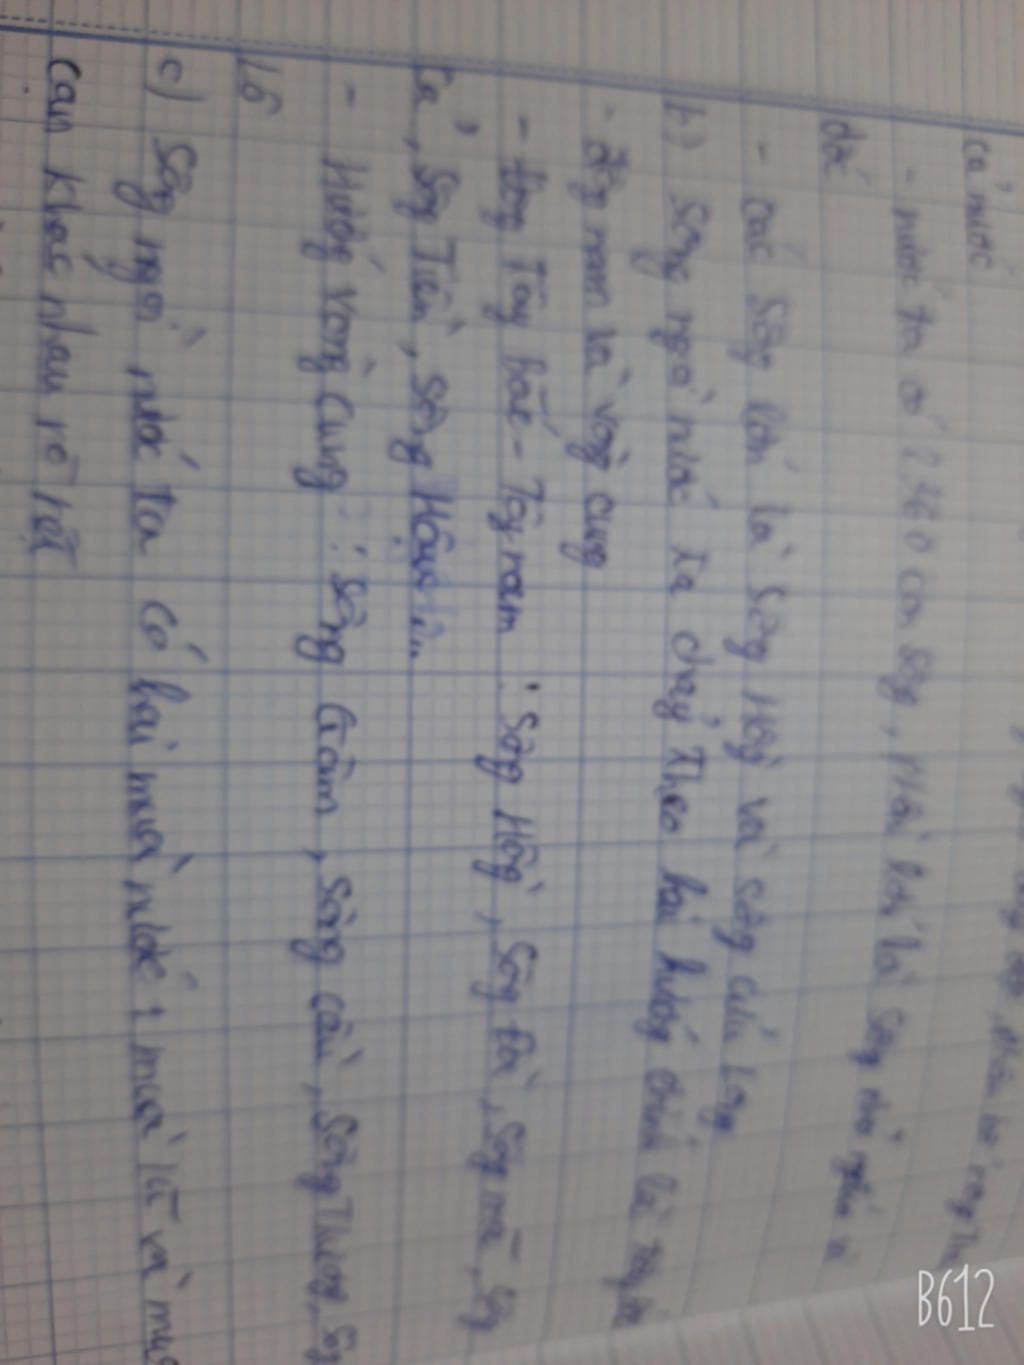 cả nước
- nước ta có 2360 con sông, phần lớn là sông nhỏ ngắn và
dốc
- các sông lớn là sông Hồng và sông cửu Long
b) Sông ngòi nước ta chảy theo hai hướng chính là tây bắc
- đông nam và vòng cung
- Hướng Tây bắc - Tây nam : Sông Hồng, Sông Đà, Sông mã, Sông
Cả, Sông Tiền, Sông Hậu
- Hướng Vòng Cung : Sông Gâm, Sông cầu, Sông Thương, Sông
Lô
c) Sông ngòi nước Ta có hai mùa nước : mùa lũ và mùa
Cạn khác nhau rõ rệt
B612